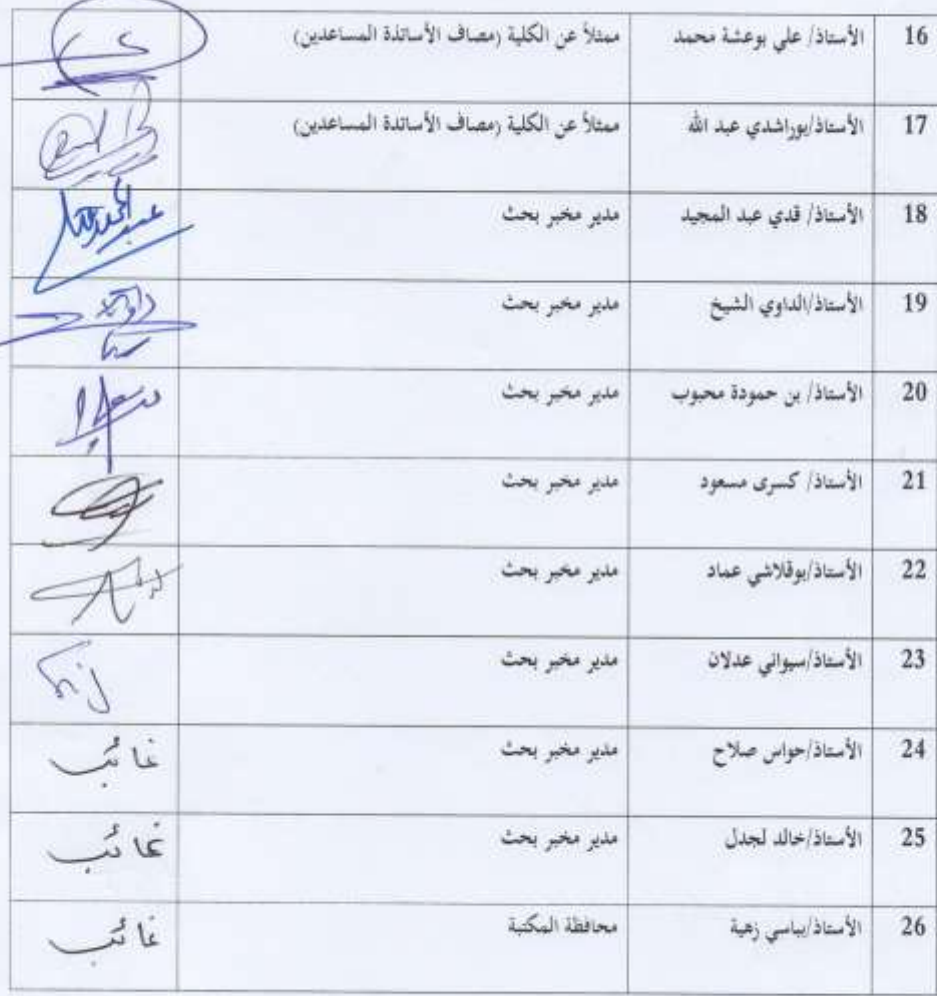 16 الأستاذ/ علي بوعشة محمد ممثلاً عن الكلية (مصاف الأساتذة المساعدين)
17 الأستاذ/بوراشدي عبد الله ممثلاً عن الكلية (مصاف الأساتذة المساعدين)
18 الأستاذ/ قدي عبد المجيد مدير مخبر بحث
19 الأستاذ/الداوي الشيخ مدير مخبر بحث
20 الأستاذ/ بن حمودة محبوب مدير مخبر بحث
21 الأستاذ/ كسرى مسعود مدير مخبر بحث
22 الأستاذ/بوقلاشي عماد مدير مخبر بحث
23 الأستاذ/سيواني عدلان مدير مخبر بحث
24 الأستاذ/حواس صلاح مدير مخبر بحث غائب
25 الأستاذ/خالد لجدل مدير مخبر بحث غائب
26 الأستاذ/بباسي زهية محافظة المكتبة غائب